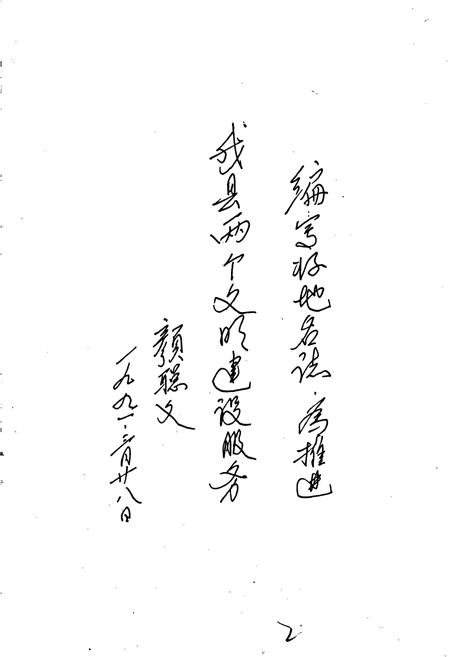 编写好地名志，为推进
我县两个文明建设服务
颜聪文
一九九一·三月廿八日
2